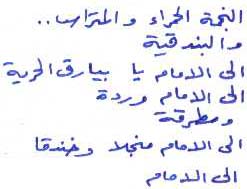 النجمة الحمراء والمتراس..
والبندقية
الى الامام يا بيارق الحرية
الى الامام وردة
ومطرقة
الى الامام منجلا وخندقا
الى الامام